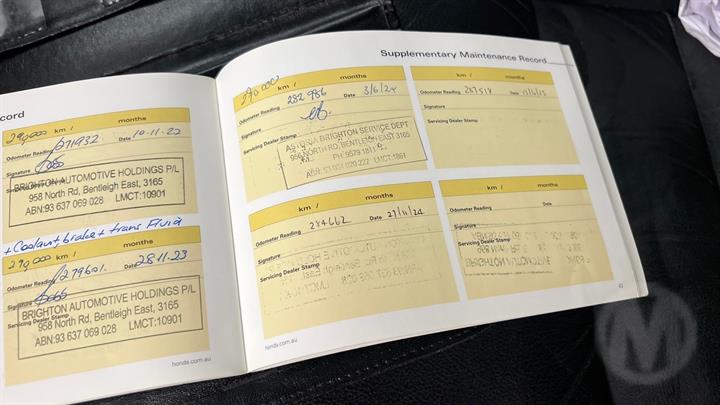 cord
290,000 km / months
Odometer Reading 271932 Date 10-11-22
Signature
Servicing Dealer Stamp
BRIGHTON AUTOMOTIVE HOLDINGS P/L
958 North Rd, Bentleigh East, 3165
ABN:93 637 069 028 LMCT:10901
+ Coolant brake + trans Fluid
290,000 km / months
Odometer Reading 279601 Date 28.11.23
Signature
Servicing Dealer Stamp
BRIGHTON AUTOMOTIVE HOLDINGS P/L
958 North Rd, Bentleigh East, 3165
ABN:93 637 069 028 LMCT:10901
honda.com.au
Supplementary Maintenance Record
290000 km / months
Odometer Reading 282 986 Date 3/6/24
Signature
Servicing Dealer Stamp
BRIGHTON SERVICE DEPT
NORTH RD, BENTLEIGH EAST 3165
PH: 9579 1811
LMCT:1861
km / months
Odometer Reading 284662 Date 27/11/24
Signature
Servicing Dealer Stamp
honda.com.au
km / months
Odometer Reading 287518 Date
Signature
Servicing Dealer Stamp
km / months
Odometer Reading Date
Signature
Servicing Dealer Stamp
M